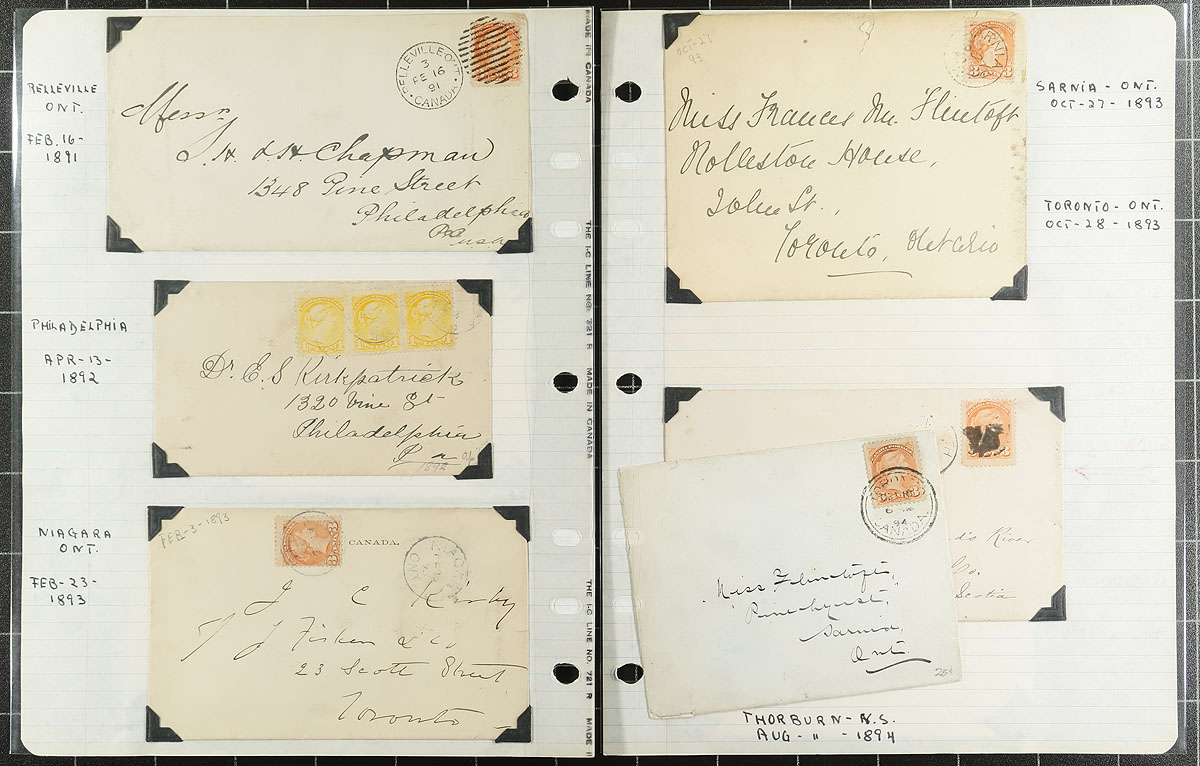 BELLEVILLE
ONT.
FEB. 16-
1891
BELLEVILLE ONT
3
FE 16
91
CANADA
Messrs
S. H. & H. Chapman
1348 Pine Street
Philadelphia
Pa
USA
PHILADELPHIA
APR-13-
1892
Dr. E. S. Kirkpatrick
1320 Vine St
Philadelphia
Pa
NIAGARA
ONT.
FEB-23-
1893
FEB-3-1893
CANADA.
J C Kirby
23 Scott Street
Toronto
MADE IN CANADA
THE I-C LINE NO. 721 R MADE IN CANADA
THE I-C LINE NO. 721 R MADE I
OCT-27
93
SARNIA
Miss Frances M. Flintoft
Rolleston House,
John St.,
Toronto, Ontario
SARNIA - ONT.
OCT-27-1893
TORONTO - ONT.
OCT-28-1893
River
Scotia
94
CANADA
Miss Flintoft,
Pinehurst,
Sarnia,
Ont.
25¢
THORBURN-N.S.
AUG- 11 -1894